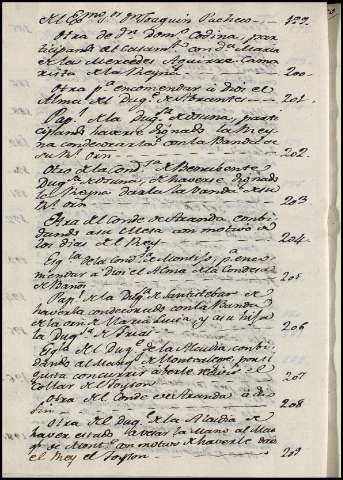 del Exmo. Sr. Dn. Joaquin Pacheco 199.
Otra de Dn. Domo. Codina, par-
ticipando el Casamto. con Da. Maria
de las Mercedes Aguirre Cama
rista de la Reyna 200.
Otra pa. encomendar á Dios el
Alma del Duqe. de Abrantes 201.
Papl. de la Duqsa. de Osuna, parti-
cipando haverse dignado la Rey-
na condecorarla con la Banda de
su Rl. Orn. 202.
Otro de la Condsa. de Benavente
Duqsa. de Osuna, de haverse dignado
la Reyna darla la Vanda de su
Rl. Orn. 203
Otra del Conde de Aranda convi-
dando a su Mesa con motivo de
los dias del Rey 204.
Esqla. de la Condsa. de Montijo, pa. enco-
mendar a Dios el Alma de la Condesa
de Baños 205
Papl. de la Duqsa. de Santisteban de
haverla condecorado con la Banda
de la orn. de Maria Luisa, y a su hija
la Duqsa. de Frias 206
Esqla. del Duqe. de la Alcudia, convi-
dando al Marqs. de Montealegre, para si
gusta concurrir a verle recivir el
Collar del Toyson 207
Otra del Conde de Aranda á
208
Otra del Duqe. de la Alcudia de
haver estado a vesar la Mano al
con motivo de haverle dado
el Rey el Toyson 209